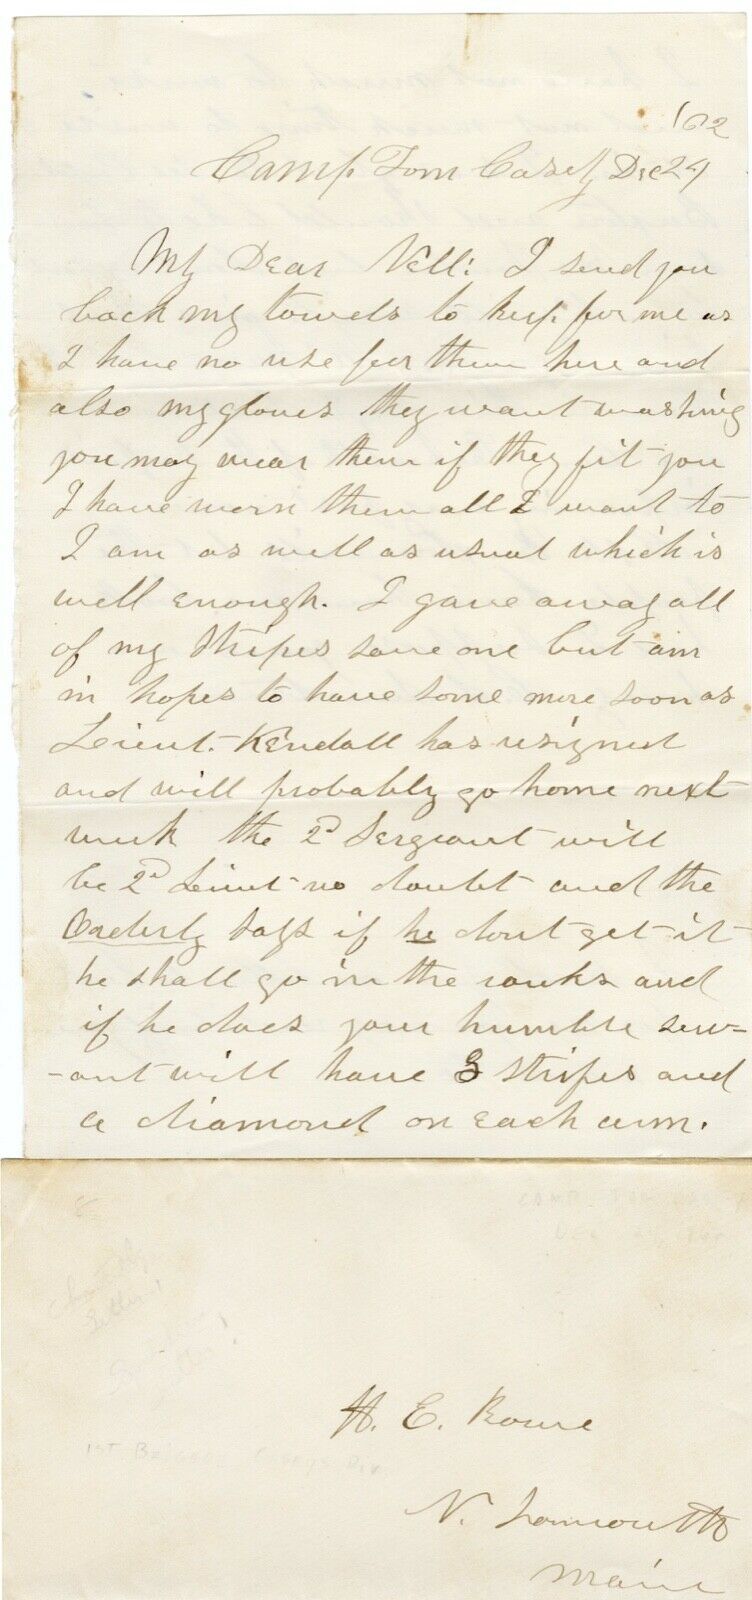 '62
Camp Tom Casey Dec 24
My Dear Nell: I send you
back my towels to keep for me as
I have no use for them here and
also my gloves they want washing
you may wear them if they fit you
I have worn them all I want to
I am as well as usual which is
well enough. I gave away all
of my stripes save one but am
in hopes to have some more soon as
Lieut. Kendall has resigned
and will probably go home next
week the 2d Sergeant will
be 2d Lieut no doubt and the
Orderly says if he dont get it
he shall go in the ranks and
if he does your humble serv-
-ant will have 3 stripes and
a diamond on each arm.
H. E. Rowe
N. Yarmouth
Maine